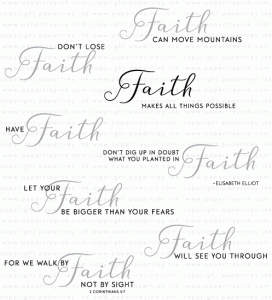 Faith
CAN MOVE MOUNTAINS
DON'T LOSE
Faith
Faith
MAKES ALL THINGS POSSIBLE
HAVE Faith
DON'T DIG UP IN DOUBT
WHAT YOU PLANTED IN Faith
~ELISABETH ELLIOT
LET YOUR Faith
BE BIGGER THAN YOUR FEARS
Faith
WILL SEE YOU THROUGH
FOR WE WALK BY Faith
NOT BY SIGHT
2 CORINTHIANS 5:7